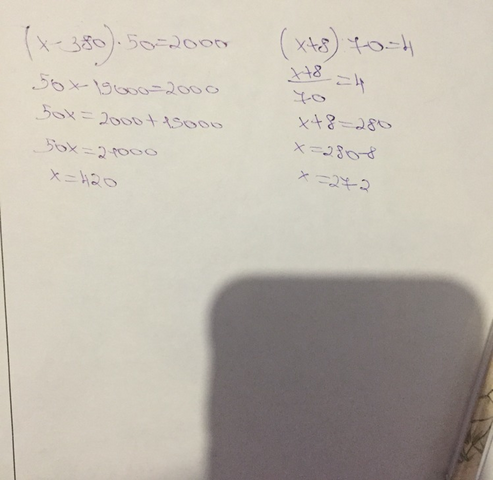 (x-380)·50=2000
50x-19000=2000
50x=2000+19000
50x=21000
x=420
(x+8) 70=4
x+8
70
=4
x+8=280
x=280-8
x=272